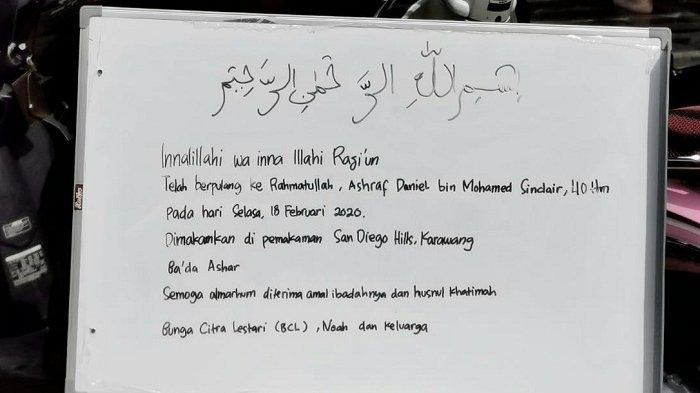 بسم الله الرحمن الرحيم
Innalillahi wa inna Illahi Razi'un
Telah berpulang ke Rahmatullah, Ashraf Daniel bin Mohamed Sinclair, 40 thn
Pada hari Selasa, 18 Februari 2020.
Dimakamkan di pemakaman San Diego Hills, Karawang
Ba'da Ashar
Semoga almarhum diterima amal ibadahnya dan husnul khatimah
Bunga Citra Lestari (BCL), Noah dan keluarga